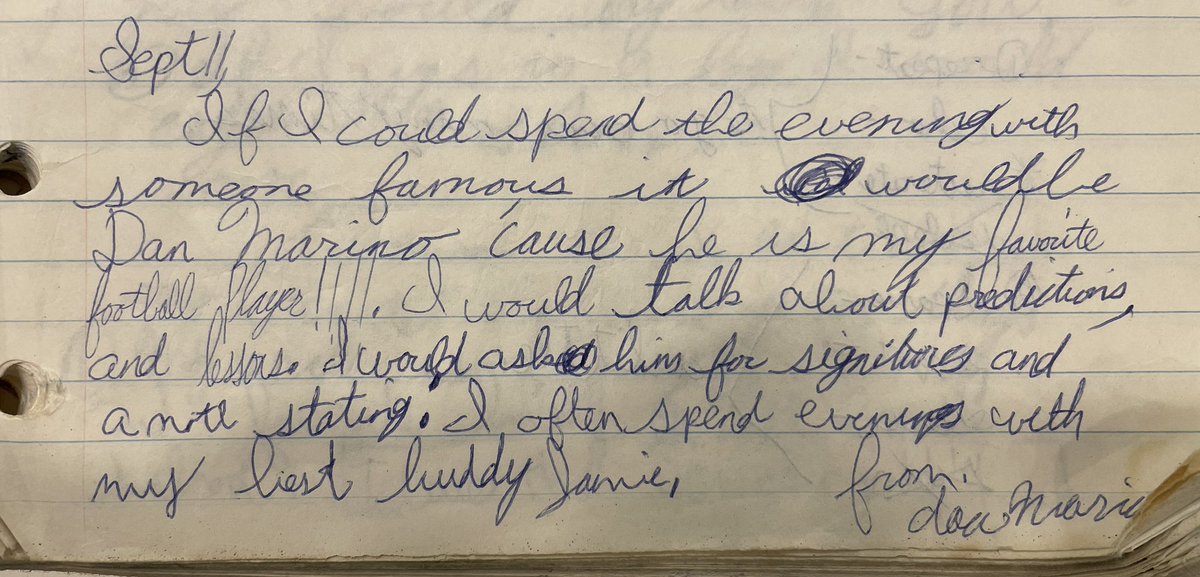 Sept 11,
If I could spend the evening with
someone famous it would be
Dan Marino 'cause he is my favorite
football player!!!!!. I would talk about predictions,
and lessons. I would ask him for signitures and
a note stating. I often spend evenings with
my best buddy Jamie,
from,
dan Marin